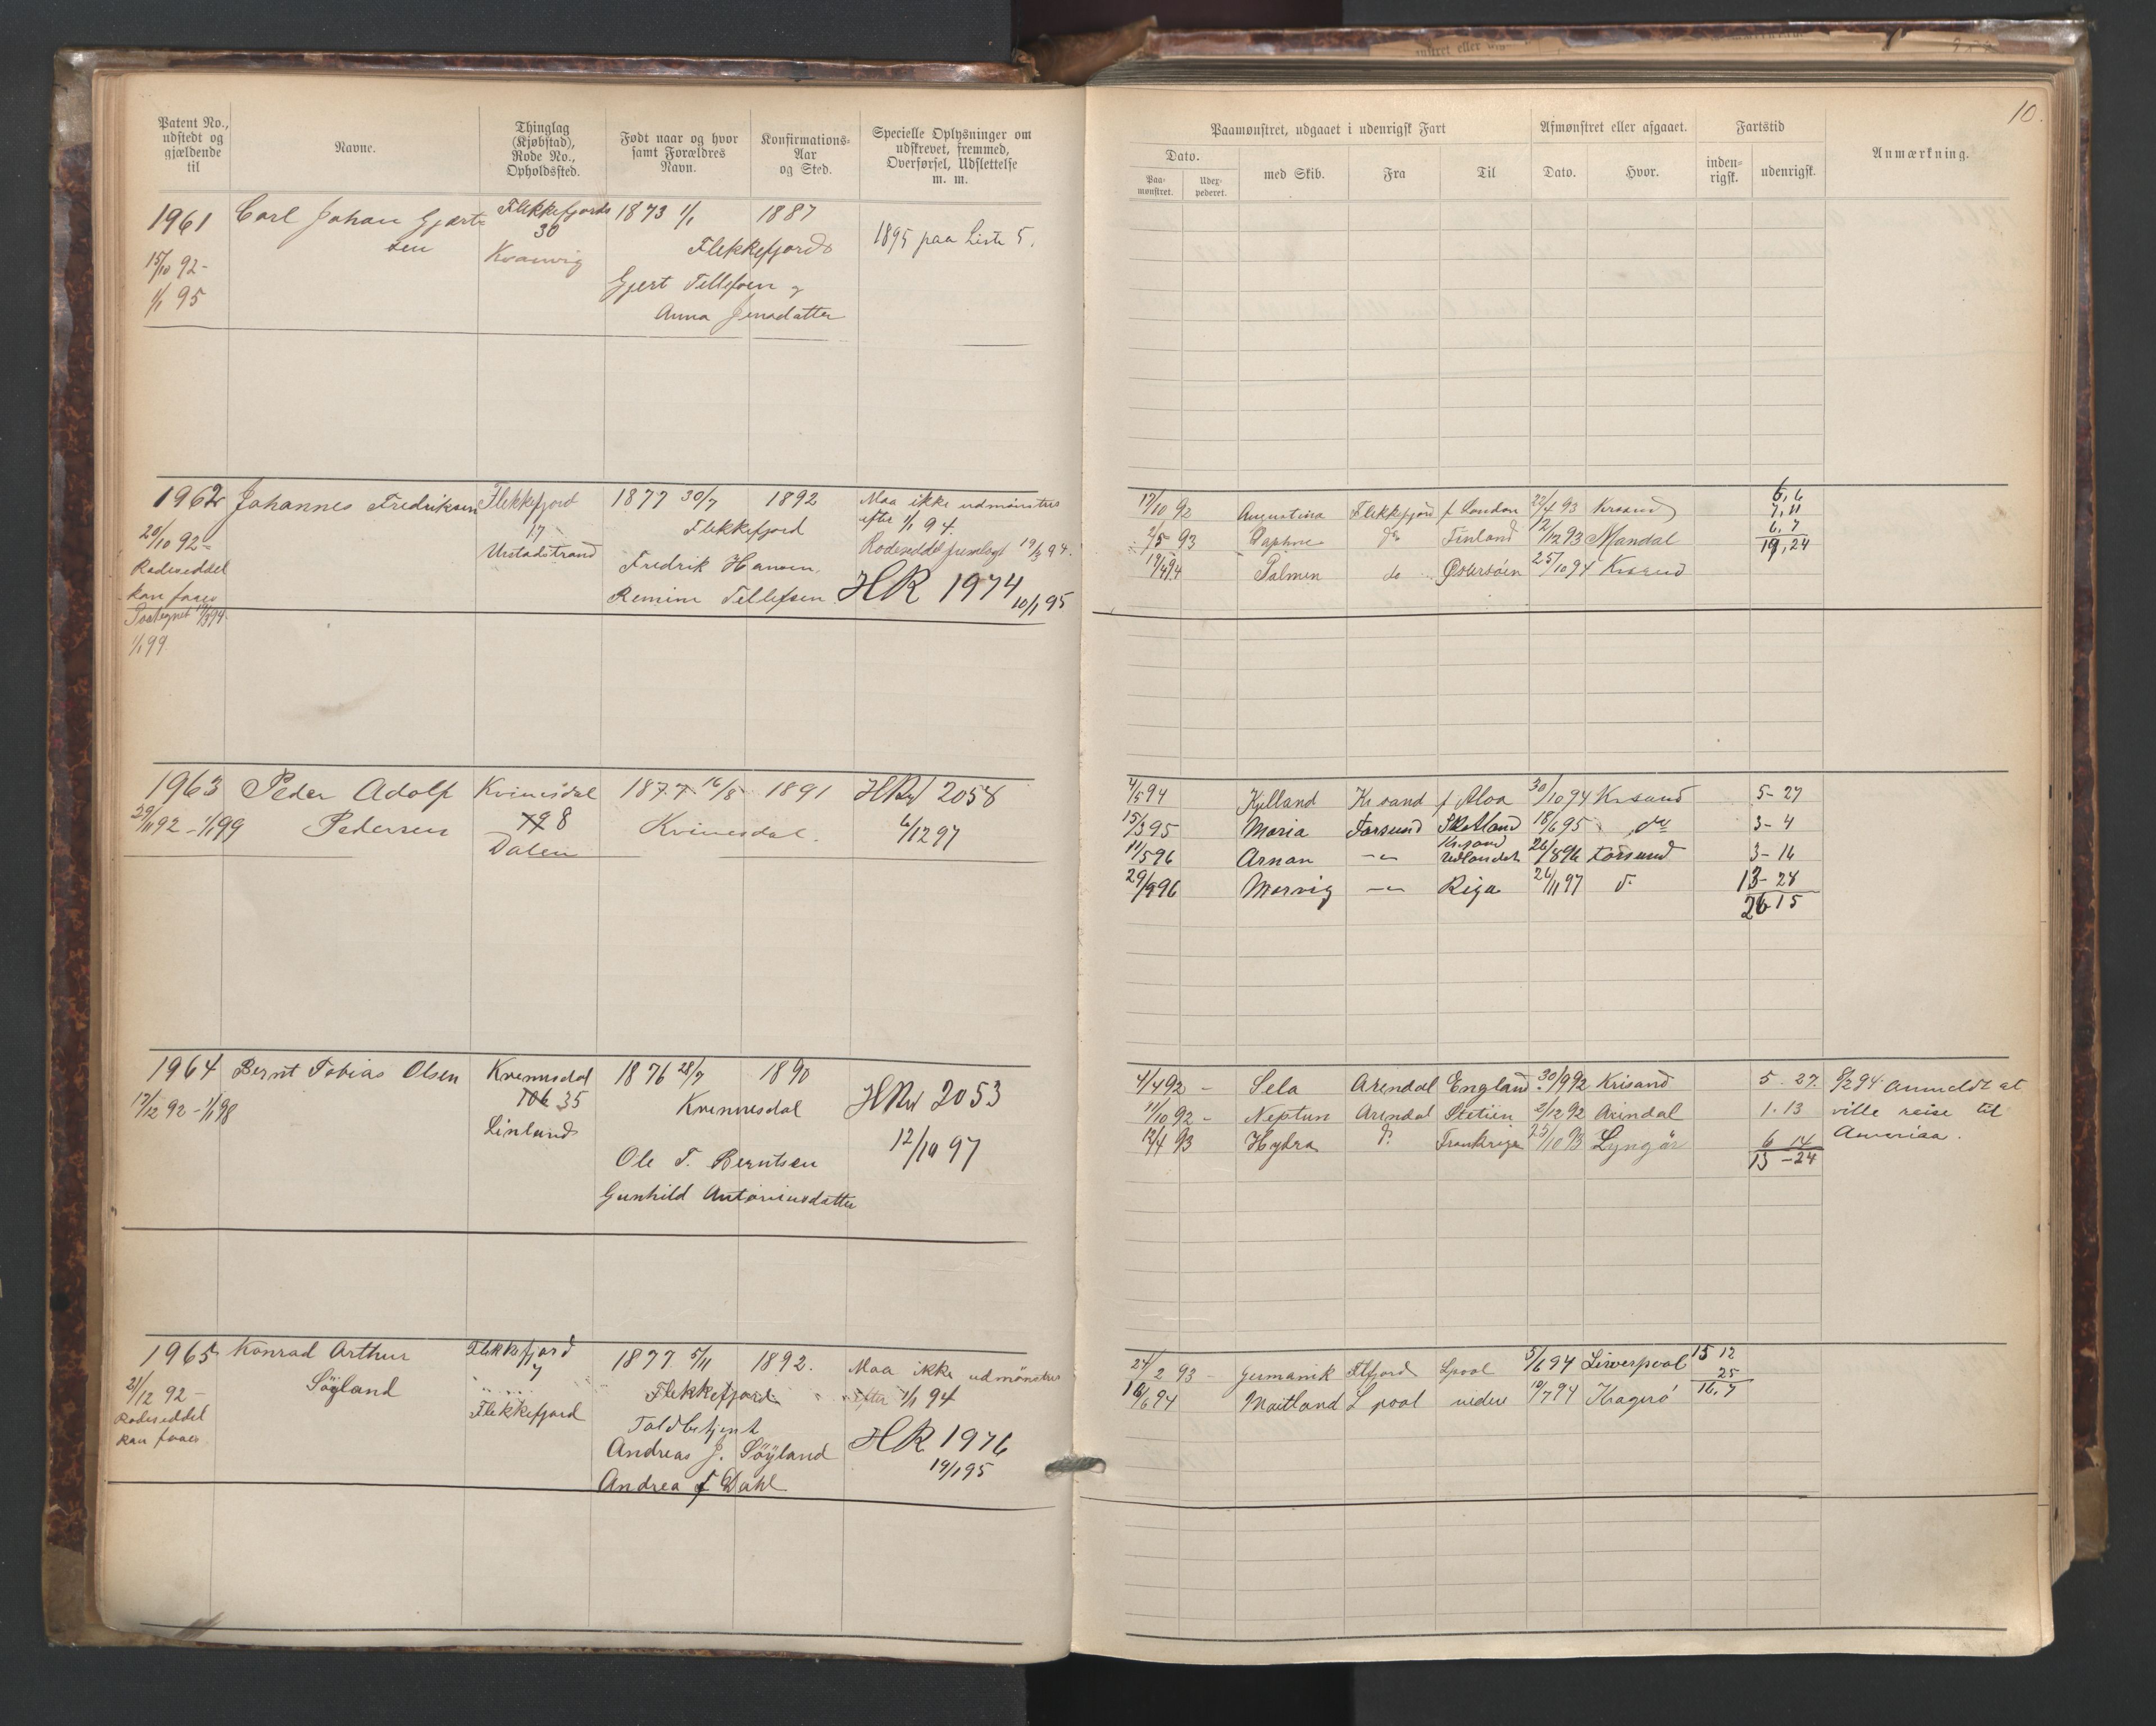 Patent No., udstedt og gjældende til
Navne.
Thinglag (Kjøbstad), Rode No., Opholdssted.
Født naar og hvor samt Forældres Navn.
Konfirmations-Aar og Sted.
Specielle Oplysninger om udskrevet, fremmed, Overførsel, Udslettelse m. m.
1961 Carl Johan Gjert- Flekkefjords 1873 1/1 1887
sen 30 Flekkefjords 1895 paa Liste 5.
15/10 92- Kvanvig
1/1 95 Gjert Tellefsen og
Anna Jensdatter
1962 Johannes Fredriksen Flekkefjord 1877 30/7 1892 Maa ikke udmønstres
17 Flekkefjord efter 1/1 94.
20/10 92= Urstadstrand Rodeseddel fremlagt 19/3 94.
Rodeseddel Fredrik Hansen
kan faaes Remine Tellefsen HR 1974
10/1 95
1/1 99
1963 Peder Adolf Kvinesdal 1877 16/8 1891 HRd 2058
29/11 92 - 1/1 99 Pedersen 8 Kvinesdal. 6/12 97
Dalen
1964 Bernt Tobias Olsen Kvennesdal 1876 28/7 1890
17/12 92 - 1/1 98 106 35 Kvennesdal HRd 2053
Linland 12/10 97
Ole T. Berntsen
Gunhild Antoniusdatter
1965 Konrad Arthur Flekkefjord 1877 5/11 1892. Maa ikke udmønstres
Söyland 7 Flekkefjord efter 1/1 94
21/12 92- Flekkefjord Toldbetjent
Rodeseddel Andreas J. Söyland HR 1976
kan faaes Andrea f Dahl 19/1 95
10.
Paamønstret, udgaaet i udenrigsk Fart
Afmønstret eller afgaaet.
Fartstid
Anmærkning.
Dato.
Paa-mønstret.
Udex-pederet.
med Skib.
Fra
Til
Dato.
Hvor.
inden-rigsk.
udenrigsk.
17/10 92 Augustina Flekkefjord f London 22/4 93 Krsand 6, 6
2/5 93 Daphne do Finland 12/12 93 Mandal 7, 11
19/4 94 Palmen do Østersöen 25/10 94 Krsand 6, 7
19, 24
4/5 94 Kjelland Kr.sand f Aloa 30/10 94 Kr.sand 5- 27
15/3 95 Maria Farsund Skotland 18/6 95 do 3- 4
11/5 96 Arnan -"- Kr.sand Udlandet 26/8 96 Farsund 3- 16
29/9 96 Morvig -"- Riga 26/11 97 do 13- 28
26 15
4/4 92 - Sela Arendal England 30/9 92 Krisand 5. 27. 8/2 94 Anmeldt at
11/10 92 - Neptun Arendal Stetien 2/12 92 Arendal 1. 13 ville reise til
12/4 93 Hydra do Frankrige 25/10 93 Lyngör 6 14 Amerika.
13 - 24
24/2 93 - Germanik Flfjord Lpool 5/6 94 Liverpool 15 12
16/6 94 Maitland L pool 10/7 94 Kragerö 25
16, 7